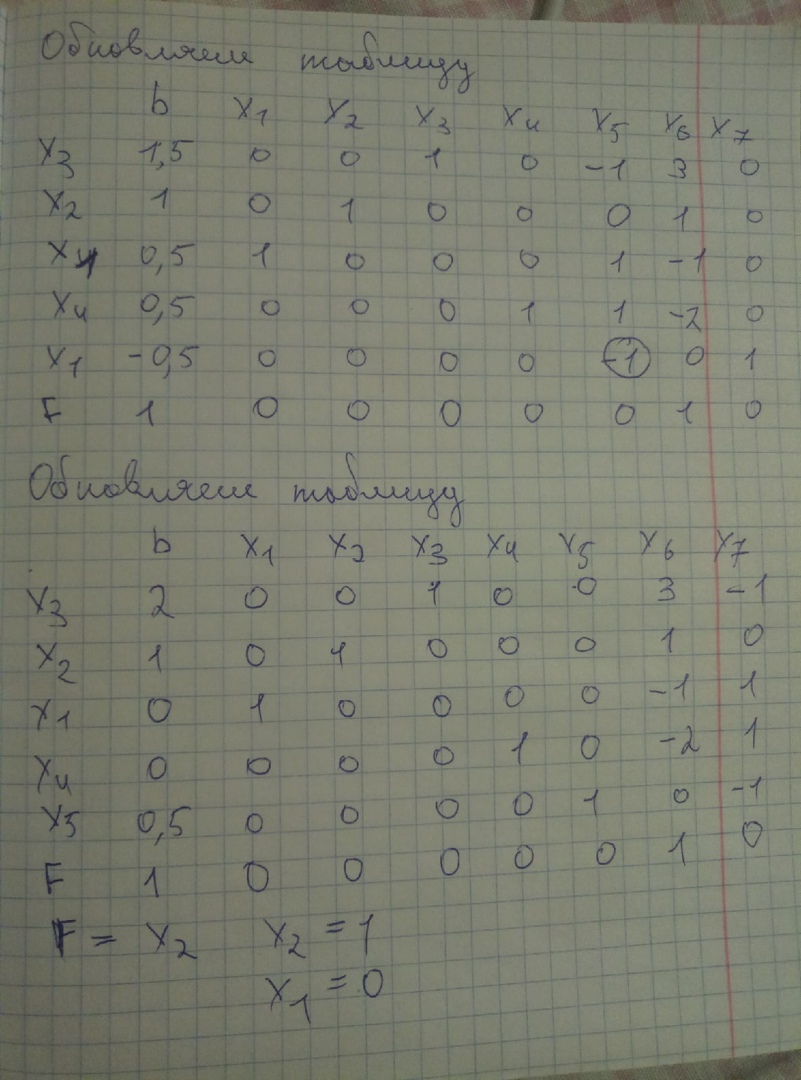 Обновляем таблицу
b X1 X2 X3 X4 X5 X6 X7
X3 1,5 0 0 1 0 -1 3 0
X2 1 0 1 0 0 0 1 0
X1 0,5 1 0 0 0 1 -1 0
X4 0,5 0 0 0 1 1 -2 0
X1 -0,5 0 0 0 0 -1 0 1
F 1 0 0 0 0 0 1 0
Обновляем таблицу
b X1 X2 X3 X4 X5 X6 X7
X3 2 0 0 1 0 0 3 -1
X2 1 0 1 0 0 0 1 0
X1 0 1 0 0 0 0 -1 1
X4 0 0 0 0 1 0 -2 1
X5 0,5 0 0 0 0 1 0 -1
F 1 0 0 0 0 0 1 0
F = X2 X2 = 1
X1 = 0